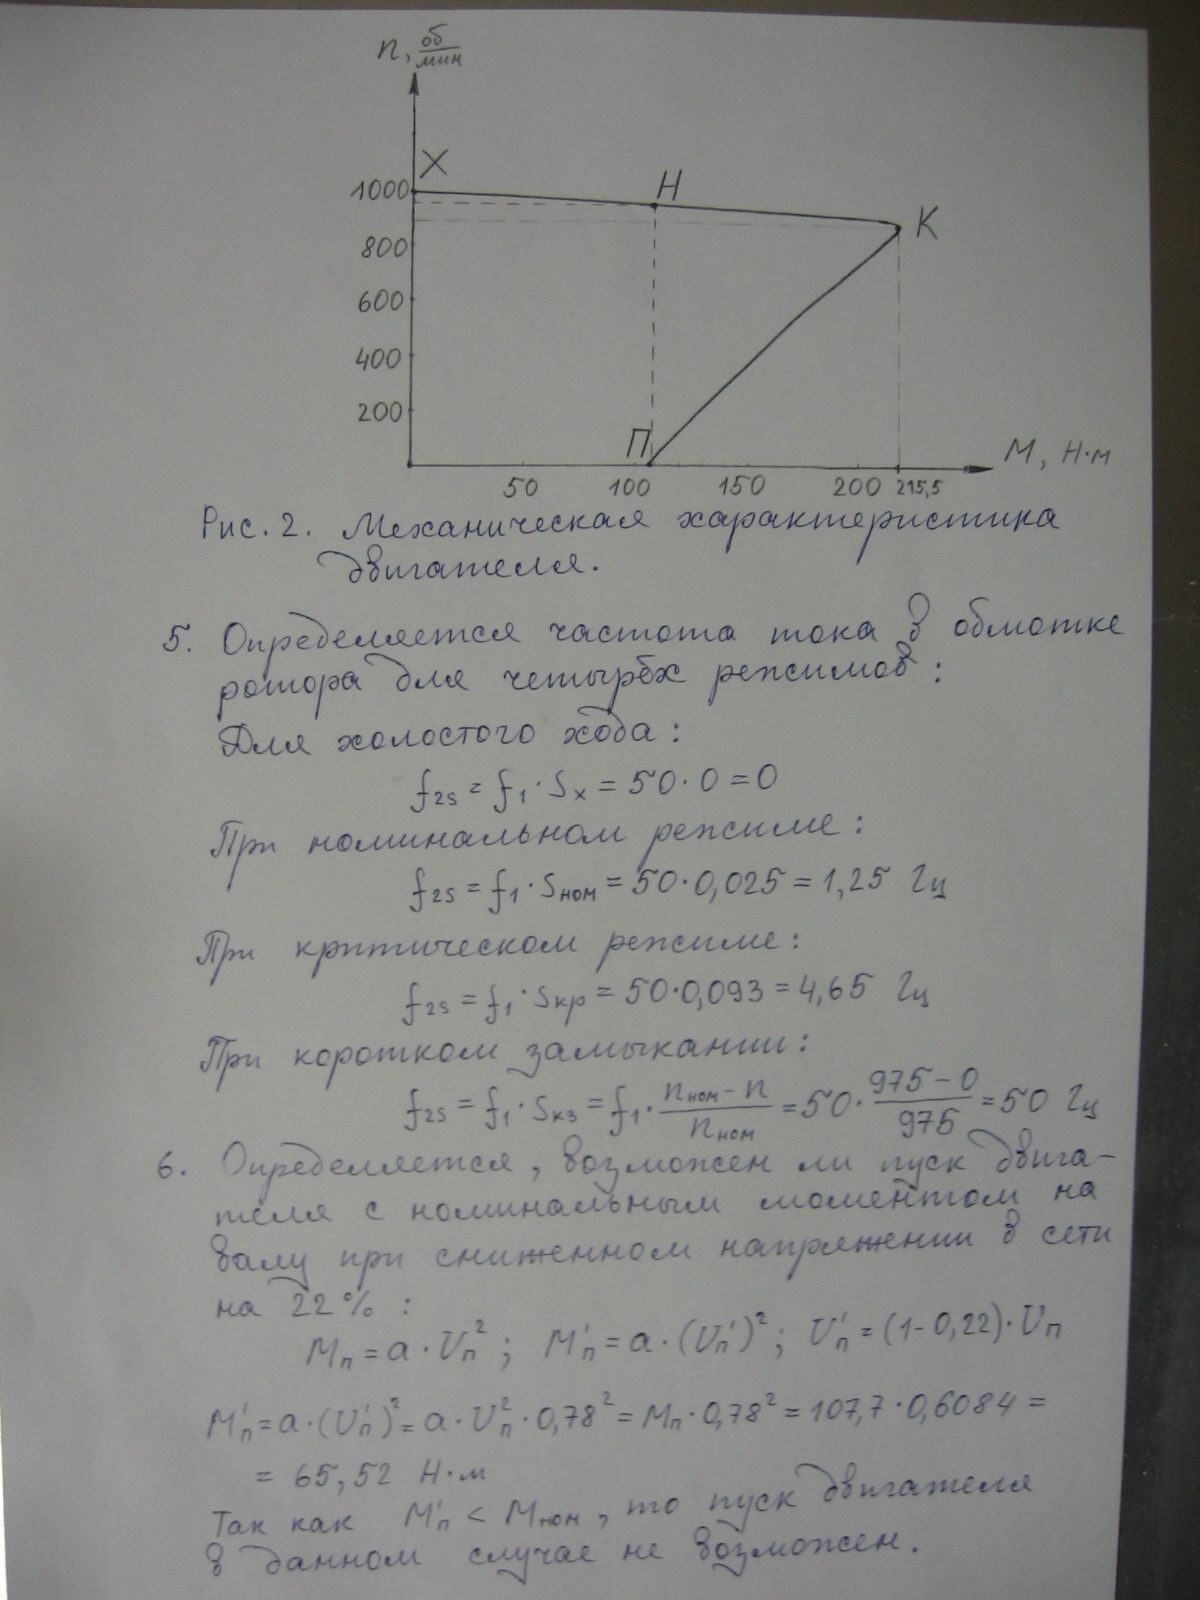 n, об/мин
X
1000
H
K
800
600
400
200
П
50 100 150 200 215,5
M, Н·м
Рис. 2. Механическая характеристика
двигателя.
5. Определяется частота тока в обмотке
ротора для четырёх режимов:
Для холостого хода:
f₂ₛ = f₁ · Sₓ = 50 · 0 = 0
При номинальном режиме:
f₂ₛ = f₁ · Sном = 50 · 0,025 = 1,25 Гц
При критическом режиме:
f₂ₛ = f₁ · Sкр = 50 · 0,093 = 4,65 Гц
При коротком замыкании:
f₂ₛ = f₁ · Sкз = f₁ · (nном - n)/nном = 50 · (975 - 0)/975 = 50 Гц
6. Определяется, возможен ли пуск двига-
теля с номинальным моментом на
валу при сниженном напряжении в сети
на 22% :
Mп = a · Uп² ; M'п = a · (U'п)² ; U'п = (1 - 0,22) · Uп
M'п = a · (U'п)² = a · Uп² · 0,78² = Mп · 0,78² = 107,7 · 0,6084 =
= 65,52 Н·м
Так как M'п < Mном, то пуск двигателя
в данном случае не возможен.